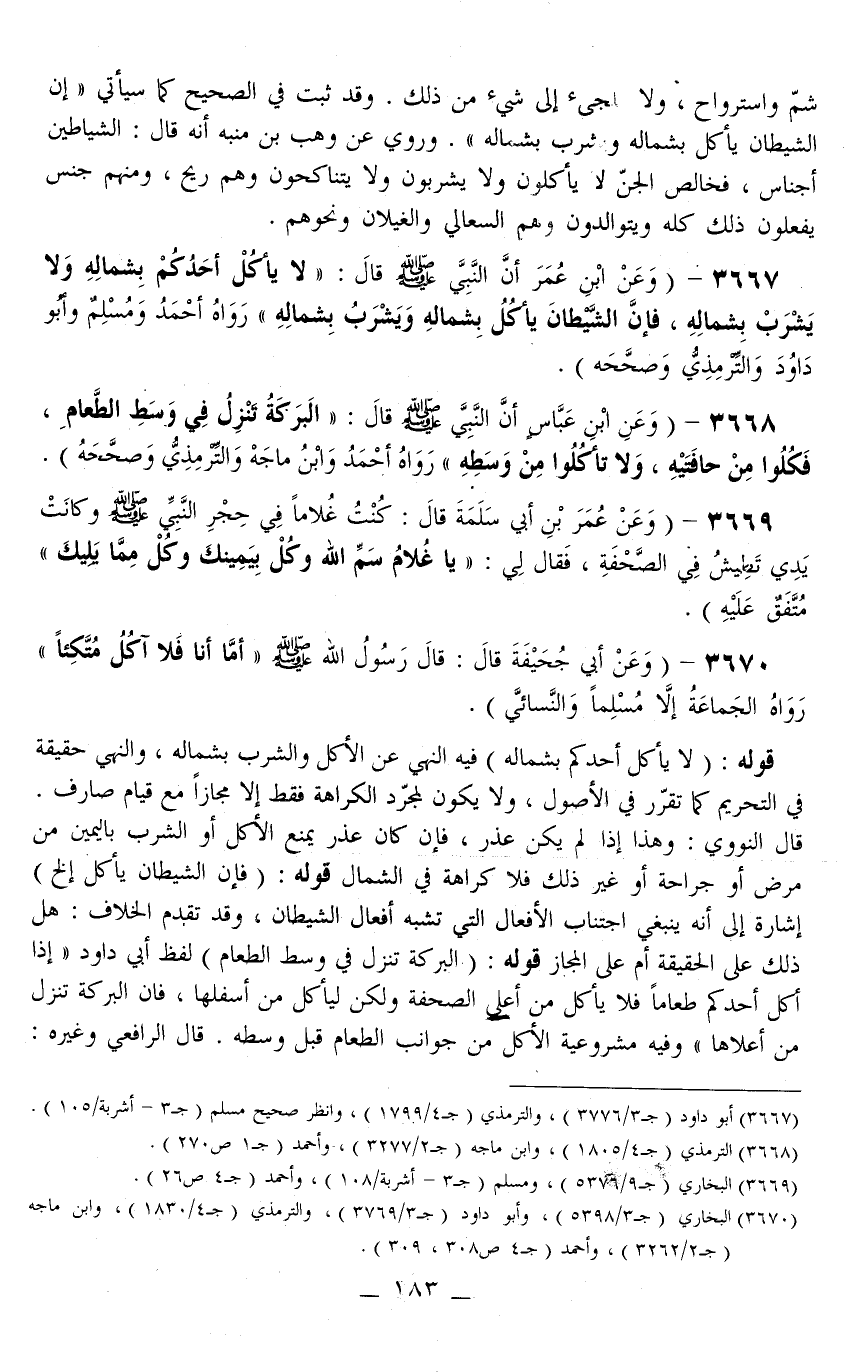 شمّ واسترواح ، ولا لمجىء إلى شيء من ذلك . وقد ثبت في الصحيح كما سيأتي « إن
الشيطان يأكل بشماله ويشرب بشماله » . وروي عن وهب بن منبه أنه قال : الشياطين
أجناس ، فخالص الجنّ لا يأكلون ولا يشربون ولا يتناكحون وهم ريح ، ومنهم جنس
يفعلون ذلك كله ويتوالدون وهم السعالي والغيلان ونحوهم .
٣٦٦٧ – ( وَعَنْ ابْنِ عُمَرَ أنَّ النَّبِيَّ ﷺ قالَ : « لا يأكُلْ أحَدُكُمْ بِشمالِهِ وَلا
يَشْرَبْ بِشمالِهِ ، فإنَّ الشَّيْطانَ يأكُلُ بِشمالهِ وَيَشْرَبُ بِشمالِهِ » رَوَاهُ أحْمَدُ وَمُسْلِمٌ وأبُو
دَاوُدَ وَالتِّرْمِذِيُّ وَصحَّحَه ) .
٣٦٦٨ – ( وَعَنِ ابْنِ عَبَّاسٍ أنَّ النَّبِيَّ ﷺ قالَ : « البَرَكَةُ تَنْزِلُ فِي وَسَطِ الطَّعامِ ،
فَكُلُوا مِنْ حافَتَيْهِ ، وَلا تأكُلُوا مِنْ وَسَطِهِ » رَوَاهُ أحْمَدُ وَابْنُ ماجَهْ وَالتِّرْمِذِيُّ وَصحَّحَهُ ) .
٣٦٦٩ – ( وَعَنْ عُمَرَ بْنِ أبي سَلَمَةَ قالَ : كُنْتُ غُلاماً فِي حِجْرِ النَّبِيِّ ﷺ وكانَتْ
يَدِي تَطِيشُ فِي الصَّحْفَةِ ، فَقال لِي : « يا غُلامُ سَمِّ الله وكُلْ بِيَمِينكَ وكُلْ مِمَّا يَلِيكَ »
مُتَّفَقٌ عَلَيْهِ ) .
٣٦٧٠ – ( وَعَنْ أبي جُحَيْفَةَ قالَ : قالَ رَسُولُ الله ﷺ « أمَّا أنا فَلا آكُلُ مُتَّكِئاً »
رَوَاهُ الجَماعَةُ إلَّا مُسْلِماً وَالنَّسائيَّ ) .
قوله : ( لا يأكل أحدكم بشماله ) فيه النهي عن الأكل والشرب بشماله ، والنهي حقيقة
في التحريم كما تقرّر في الأصول ، ولا يكون لمجرّد الكراهة فقط إلا مجازاً مع قيام صارف .
قال النووي : وهذا إذا لم يكن عذر ، فإن كان عذر يمنع الأكل أو الشرب باليمين من
مرض أو جراحة أو غير ذلك فلا كراهة في الشمال قوله : ( فإن الشيطان يأكل إلخ )
إشارة إلى أنه ينبغي اجتناب الأفعال التي تشبه أفعال الشيطان ، وقد تقدم الخلاف : هل
ذلك على الحقيقة أم على المجاز قوله : ( البركة تنزل في وسط الطعام ) لفظ أبي داود « إذا
أكل أحدكم طعاماً فلا يأكل من أعلى الصحفة ولكن ليأكل من أسفلها ، فان البركة تنزل
من أعلاها » وفيه مشروعية الأكل من جوانب الطعام قبل وسطه . قال الرافعي وغيره :
(٣٦٦٧) أبو داود ( جـ٣/٣٧٧٦ ) ، والترمذي ( جـ٤/١٧٩٩ ) ، وانظر صحيح مسلم ( جـ٣ – أشربة/١٠٥ ) .
(٣٦٦٨) الترمذي ( جـ٤/١٨٠٥ ) ، وابن ماجه ( جـ٢/٣٢٧٧ ) ، وأحمد ( جـ١ ص٢٧٠ ) .
(٣٦٦٩) البخاري ( جـ٩/٥٣٧٦ ) ، ومسلم ( جـ٣ – أشربة/١٠٨ ) ، وأحمد ( جـ٤ ص٢٦ ) .
(٣٦٧٠) البخاري ( جـ٣/٥٣٩٨ ) ، وأبو داود ( جـ٣/٣٧٦٩ ) ، والترمذي ( جـ٤/١٨٣٠ ) ، وابن ماجه
( جـ٢/٣٢٦٢ ) ، وأحمد ( جـ٤ ص٣٠٨ ، ٣٠٩ ) .
– ١٨٣ –